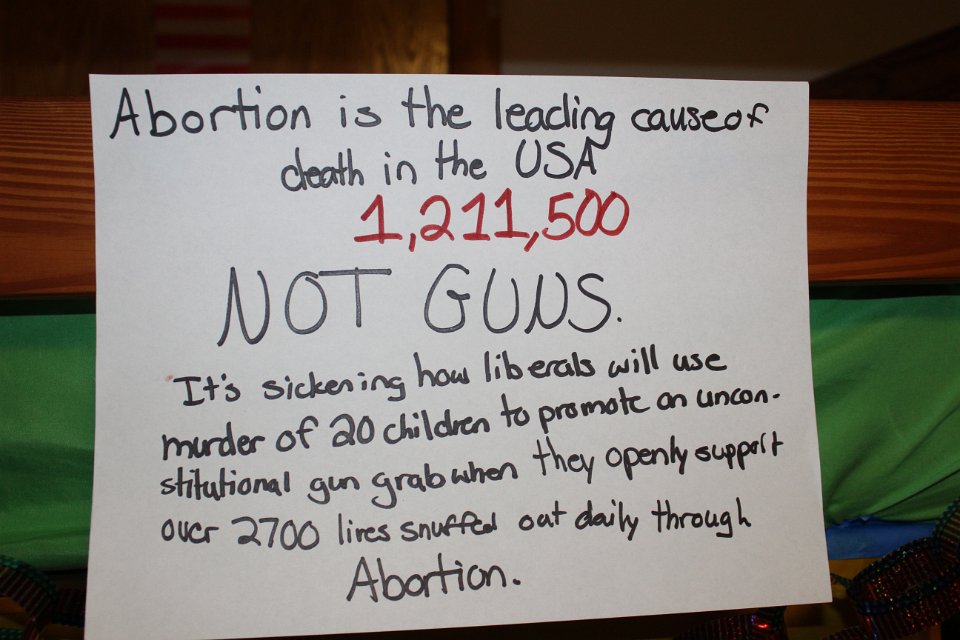 Abortion is the leading cause of
death in the USA
1,211,500
NOT GUNS.
It's sickening how liberals will use
murder of 20 children to promote an uncon-
stitutional gun grab when they openly support
over 2700 lives snuffed out daily through
Abortion.